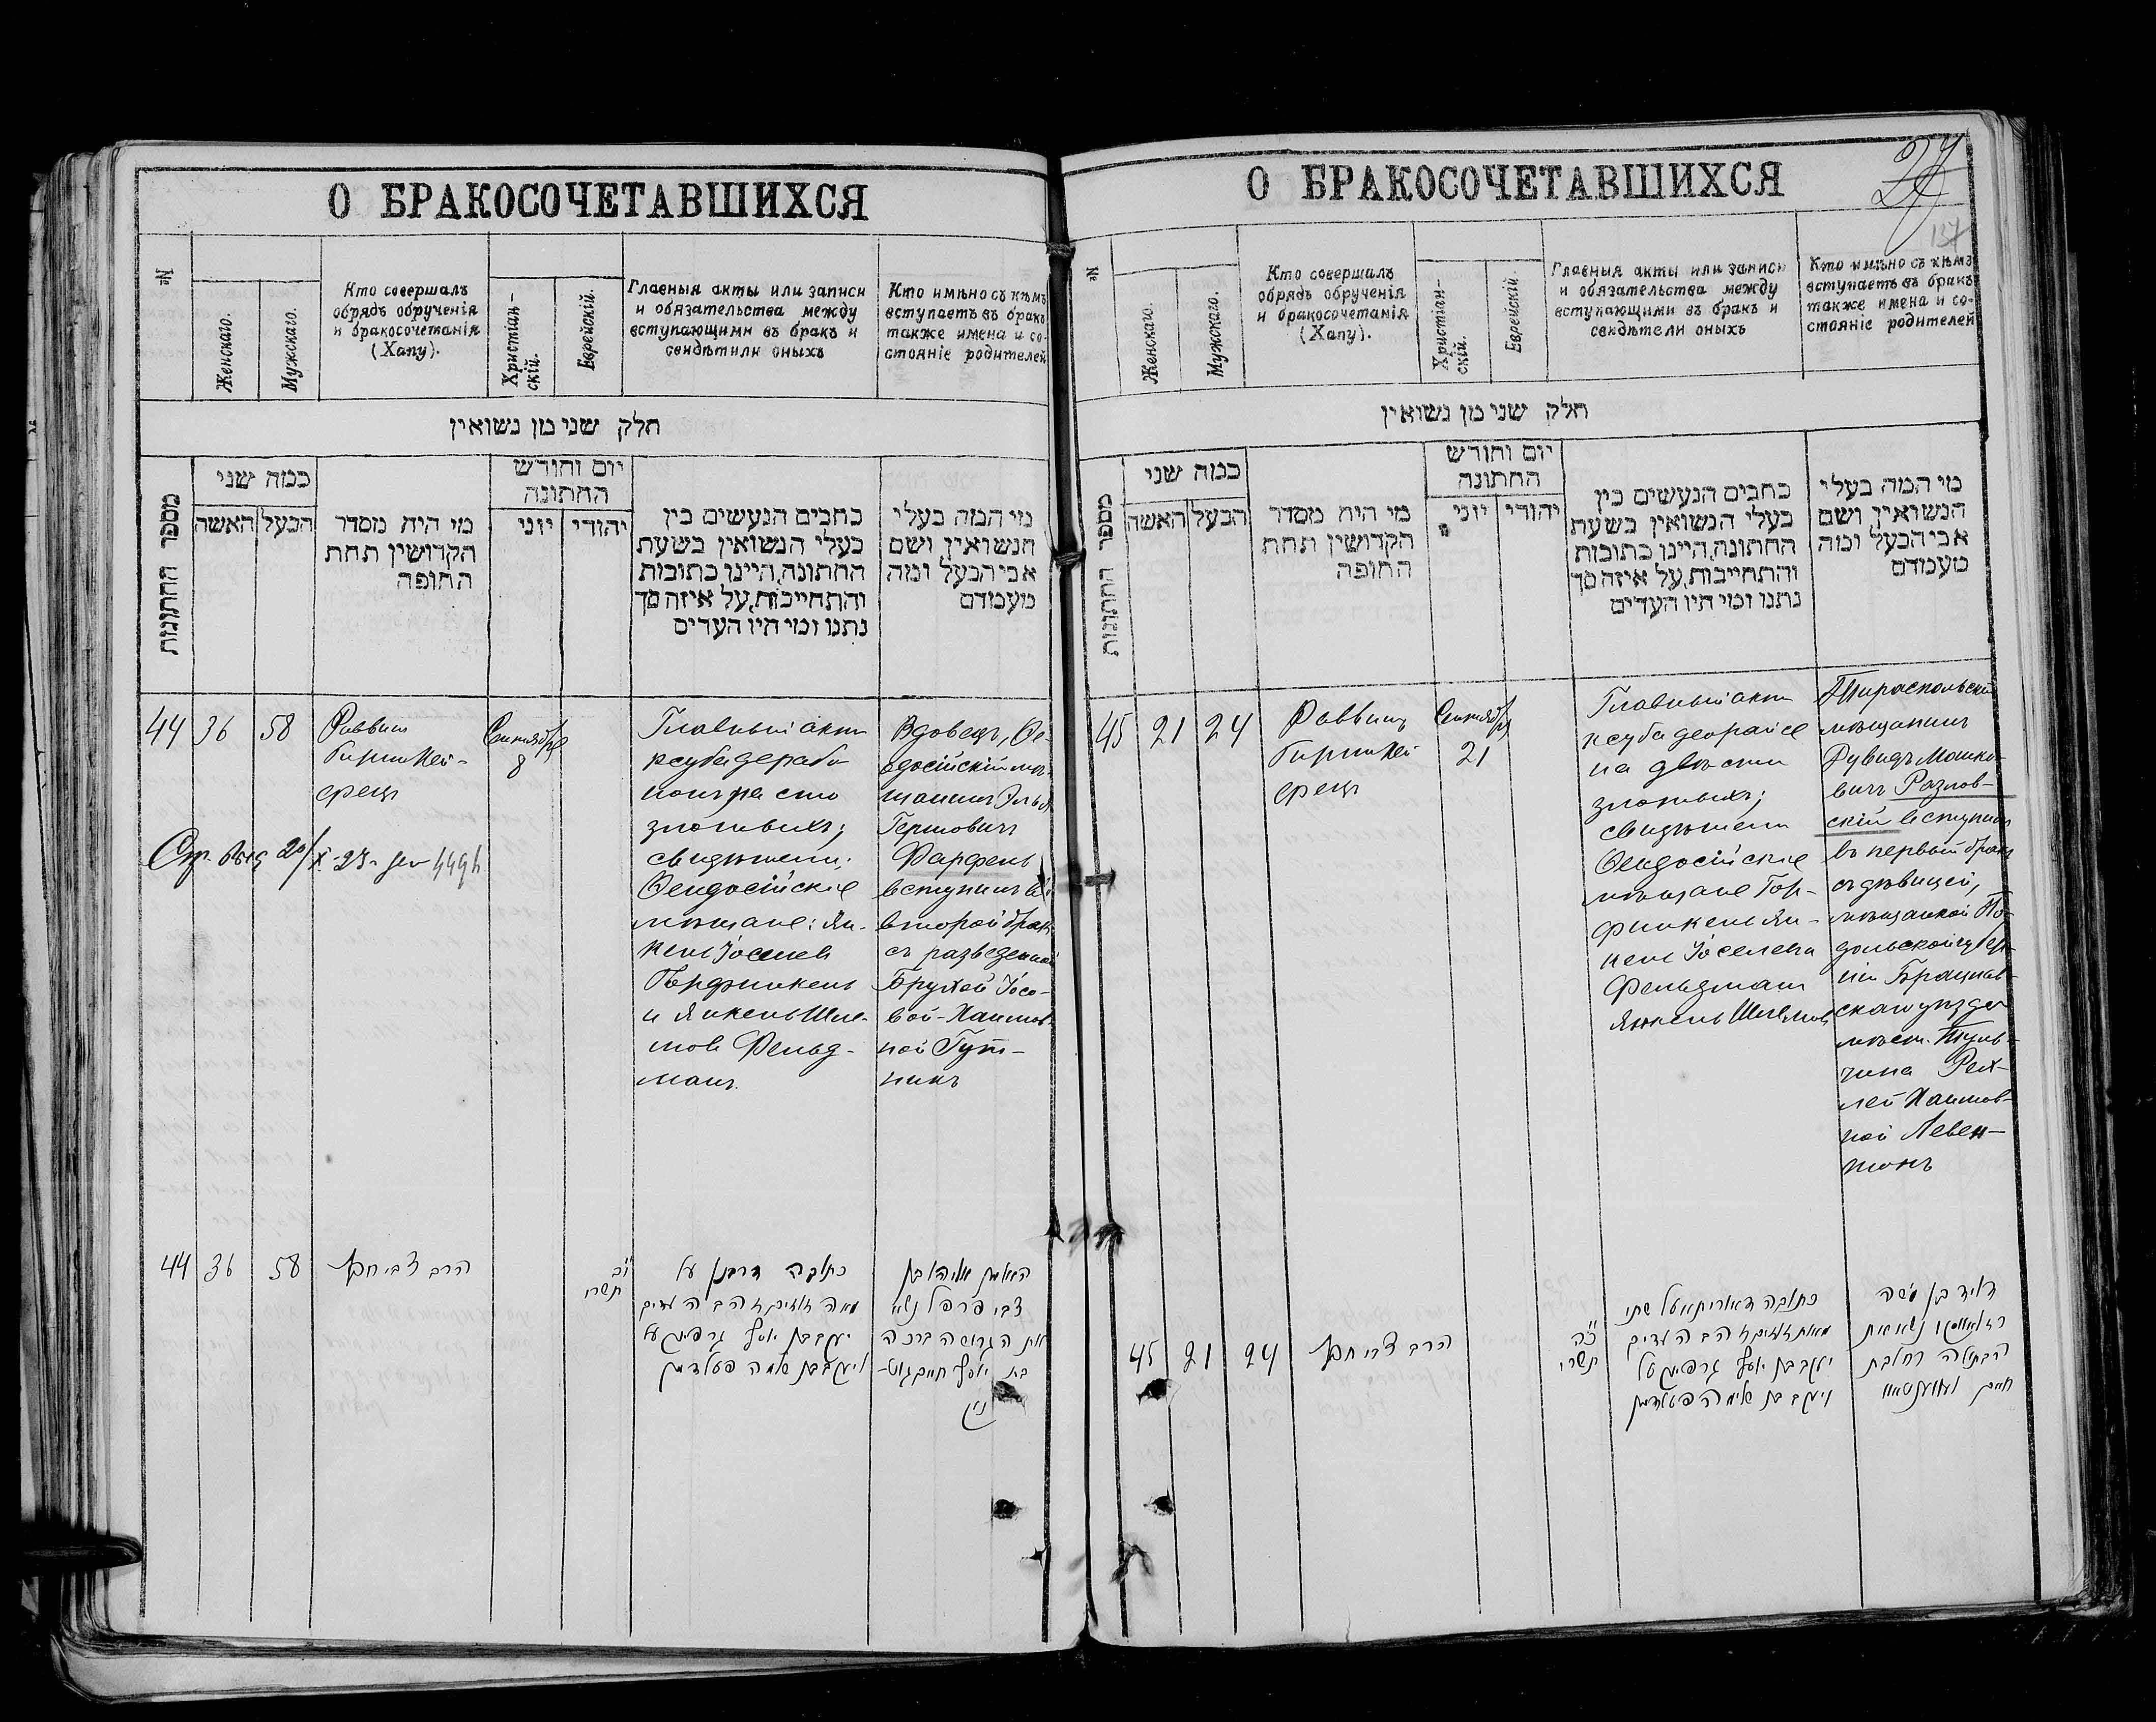 О БРАКОСОЧЕТАВШИХСЯ
№
Женскаго.
Мужскаго.
Кто совершалъ
обрядъ обрученія
и бракосочетанія
(Хапу).
Христіан-
скій.
Еврейскій.
Главныя акты или записи
и обязательства между
вступающими въ бракъ и
свидѣтили оныхъ
Кто имѣно съ кѣмъ
вступаетъ въ бракъ
также имена и со-
стояніе родителей
חלק שני מן נשואין
מספר החתונות
כמה שני
האשה
הבעל
מי היה מסדר
הקדושין תחת
החופה
יום וחודש
החתונה
יוני
יהודי
כתבים הנעשים בין
בעלי הנשואין בשעת
החתונה, היינו כתובות
והתחייבות, על איזה סך
נתנו ומי היו העדים
מי המה בעלי
הנשואין, ושם
אבי הבעל ומה
מעמדם
44
36
58
Раввин
Гирш Пей-
срецъ
Сентября
8
Главный актъ
ксуба дерабо
нонъ на сто
злотыхъ;
свидѣтели:
Ѳеодосійскіе
мѣщане: Ян-
кель Іоселев
Горфинкель
и Янкель Шле-
мов Фельд-
манъ.
Вдовецъ, Ѳе-
одосійскій мѣ-
щанинъ Элья
Гершовичъ
Фарфель
вступилъ во
второй бракъ
съ разведенной
Брухой Іосе-
вой-Хаимов-
ной Гут-
никъ
44
36
58
הרב צבי
תשרי
כתובה דרבנן על
מאה זהובים העדים
יעקב בן יוסף גרפינקעל
ויעקב בן שלמה פעלדמן
האלמן אליהו בן
צבי פרפל נשא
את הגרושה ברכה
בת יוסף חיים גוט-
ניק
О БРАКОСОЧЕТАВШИХСЯ
29
157
№
Женскаго.
Мужскаго.
Кто совершалъ
обрядъ обрученія
и бракосочетанія
(Хапу).
Христіан-
скій.
Еврейскій.
Главныя акты или записи
и обязательства между
вступающими въ бракъ и
свидѣтели оныхъ
Кто имѣно съ кѣмъ
вступаетъ въ бракъ
также имена и со-
стояніе родителей
חלק שני מן נשואין
מספר החתונות
כמה שני
האשה
הבעל
מי היה מסדר
הקדושין תחת
החופה
יום וחודש
החתונה
יוני
יהודי
כתבים הנעשים בין
בעלי הנשואין בשעת
החתונה, היינו כתובות
והתחייבות, על איזה סך
נתנו ומי היו העדים
מי המה בעלי
הנשואין, ושם
אבי הבעל ומה
מעמדם
45
21
24
Раввинъ
Гирш Пей
срецъ
Сентября
21
Главный актъ
ксуба деорайсе
на двѣсти
злотыхъ;
свидѣтели
Ѳеодосійскіе
мѣщане Гор-
финкель Ян-
кель Іоселевъ
Фельдман
Янкель Шлемов
Тираспольскій
мѣщанинъ
Дувидъ Мошко-
вичъ Разлов-
скій вступилъ
въ первый бракъ
съ дѣвицей,
мѣщанкой По-
дольской губер-
ніи Брацлав-
скаго уѣзда
мѣст. Туль-
чина Рех-
лей Хаимов-
ной Левен-
тонъ
45
21
24
הרב צבי
כ"ה
תשרי
כתובה דאורייתא על שתי
מאות זהובים העדים
יעקב בן יוסף גרפינקעל
ויעקב בן שלמה פעלדמן
דוד בן משה
נשא את
הבתולה רחל בת
חיים